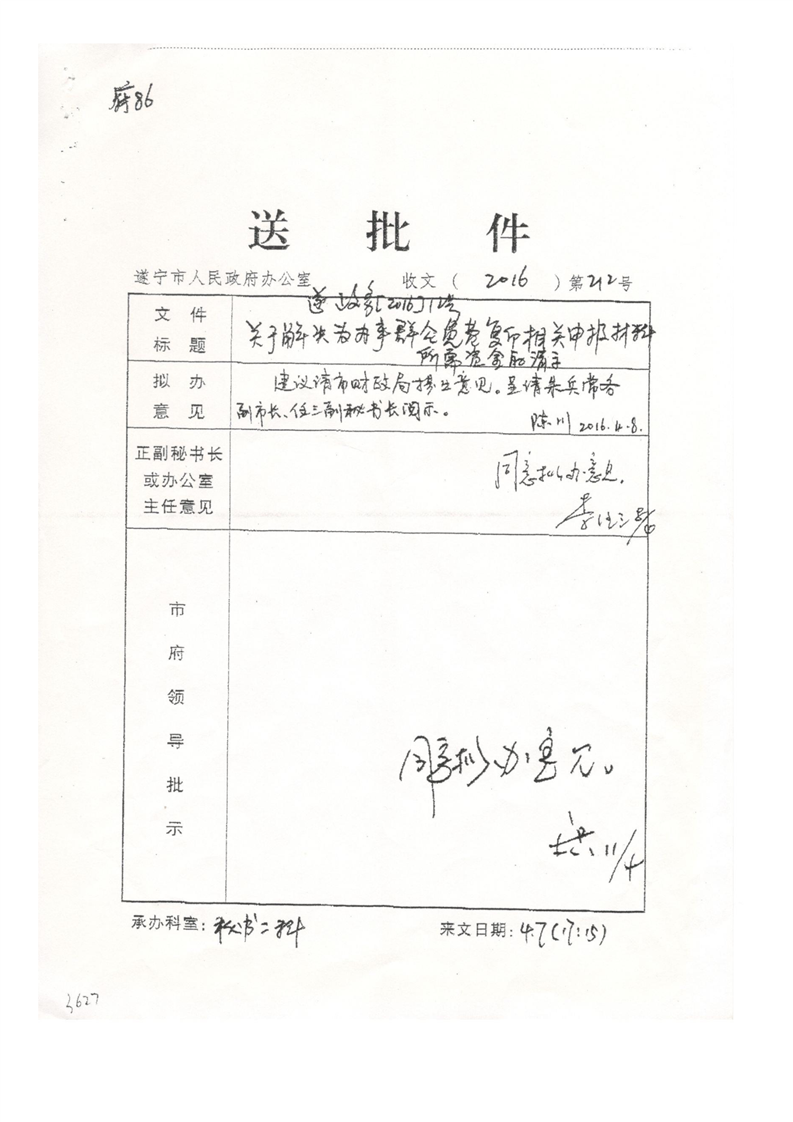 府86
送批件
遂宁市人民政府办公室 收文（2016）第212号
文件标题
遂政务[2016]12号
关于解决为办事群众免费复印相关申报材料
所需资金的请示
拟办意见
建议请市财政局提出意见。呈请朱兵常务
副市长、任三副秘书长阅示。
陈川 2016.4.8.
正副秘书长
或办公室
主任意见
同意拟办意见。
李任三
市府领导批示
同意拟办意见。
11/4
承办科室：秘书二科 来文日期：4.7(17:15)
3627